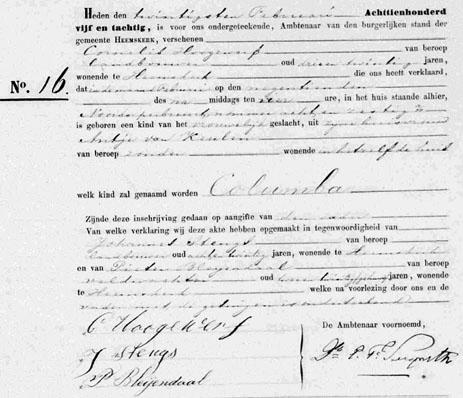 Heden den twintigsten Februari Achttienhonderd
vijf en tachtig, is voor ons ondergeteekende, Ambtenaar van den burgerlijken stand der
gemeente HEEMSKERK, verschenen
Cornelis Hoogewerf van beroep
Landbouwer oud drieëntwintig jaren,
No. 16. wonende te Heemskerk die ons heeft verklaard,
dat op den negentienden
des na middags ten vier ure, in het huis staande alhier,
nommer acht en zestig
is geboren een kind van het vrouwelijk geslacht, uit zijne huisvrouw
Antje van
van beroep zonder wonende in hetzelfde huis
welk kind zal genaamd worden Columba
Zijnde deze inschrijving gedaan op aangifte van den vader
Van welke verklaring wij deze akte hebben opgemaakt in tegenwoordigheid van
Johannes Stengs van beroep
Landbouwer oud jaren, wonende te Heemskerk
en van Pieter Bleijendaal van beroep
veldwachter oud jaren, wonende
te Heemskerk welke na voorlezing door ons en de
vader met de getuigen is onderteekend
C Hoogewerf
De Ambtenaar voornoemd,
J Stengs
P. Bleijendaal